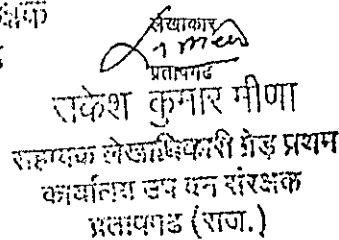 लेखाकार
प्रतापगढ
राकेश कुमार मीणा
सहायक लेखाधिकारी ग्रेड प्रथम
कार्यालय उप वन संरक्षक
प्रतापगढ (राज.)